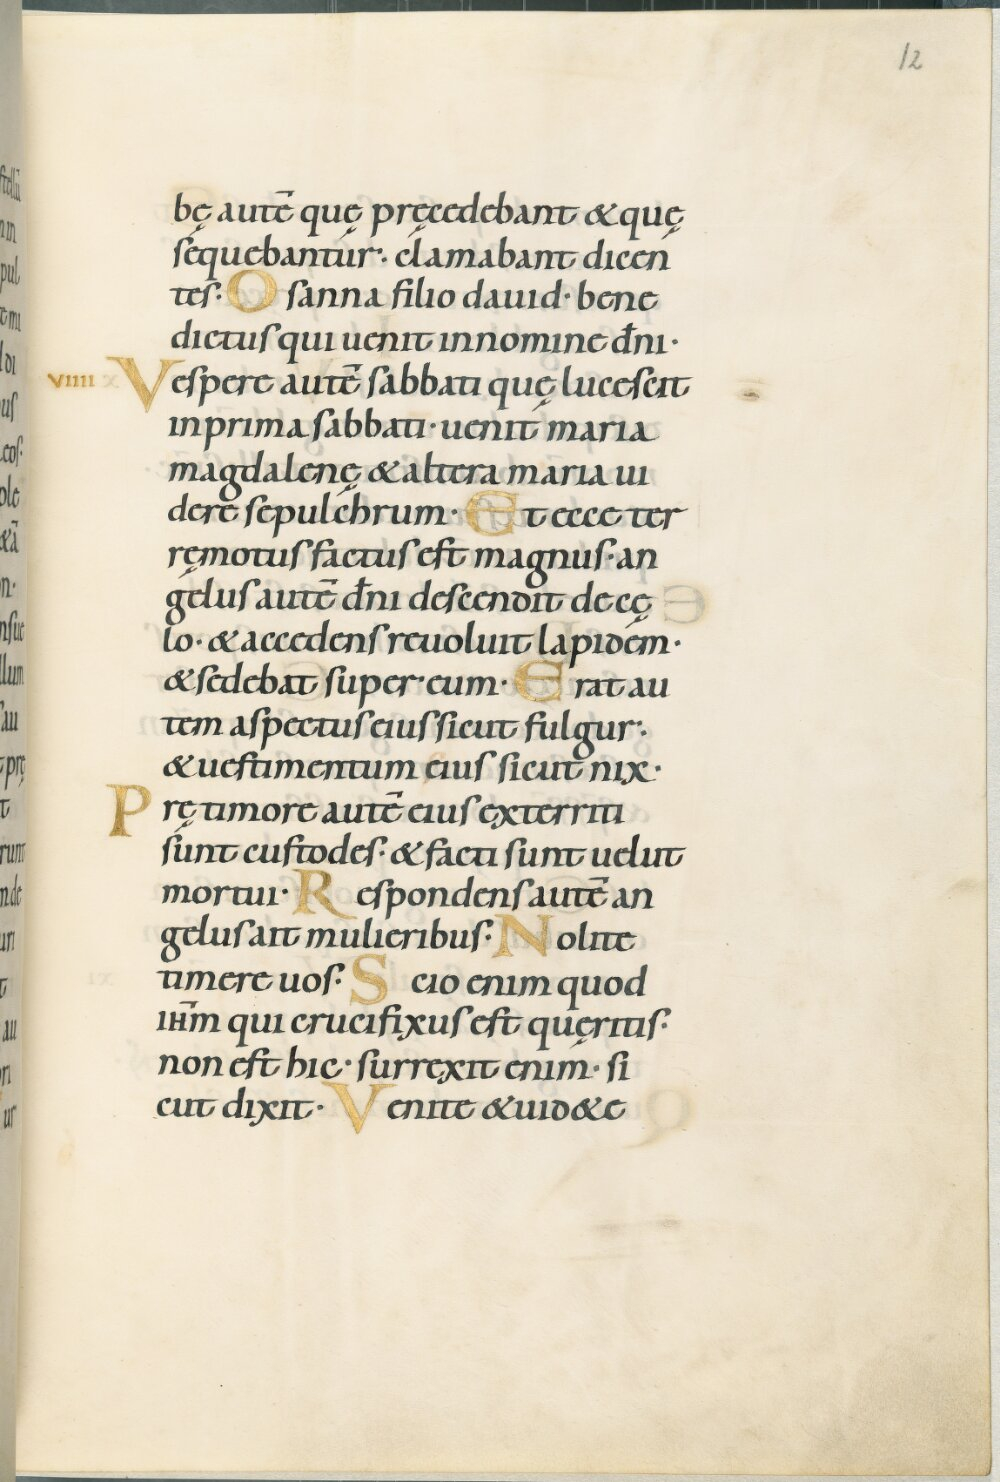 12
bę autē quę pręcedebant & quę
sequebantur· clamabant dicen
tes· Osanna filio dauid· bene
dictus qui uenit innomine dn̄i·
VIIII Vespere autē sabbati quę lucescit
inprima sabbati· uenit maria
magdalenę & altera maria ui
dere sepulchrum· Et ecce ter
ręmotus factus est magnus· an
gelus autē dn̄i descendit de cę
lo· & accedens reuoluit lapidem·
& sedebat super eum· Erat au
tem aspectus eius sicut fulgur·
& uestimentum eius sicut nix·
Prę timore autē eius exterriti
sunt custodes· & facti sunt uelut
mortui· Respondens autē an
gelus ait mulieribus· Nolite
timere uos· Scio enim quod
ihm̄ qui crucifixus est quęritis·
non est hic· surrexit enim· si
cut dixit· Venite & uid&e